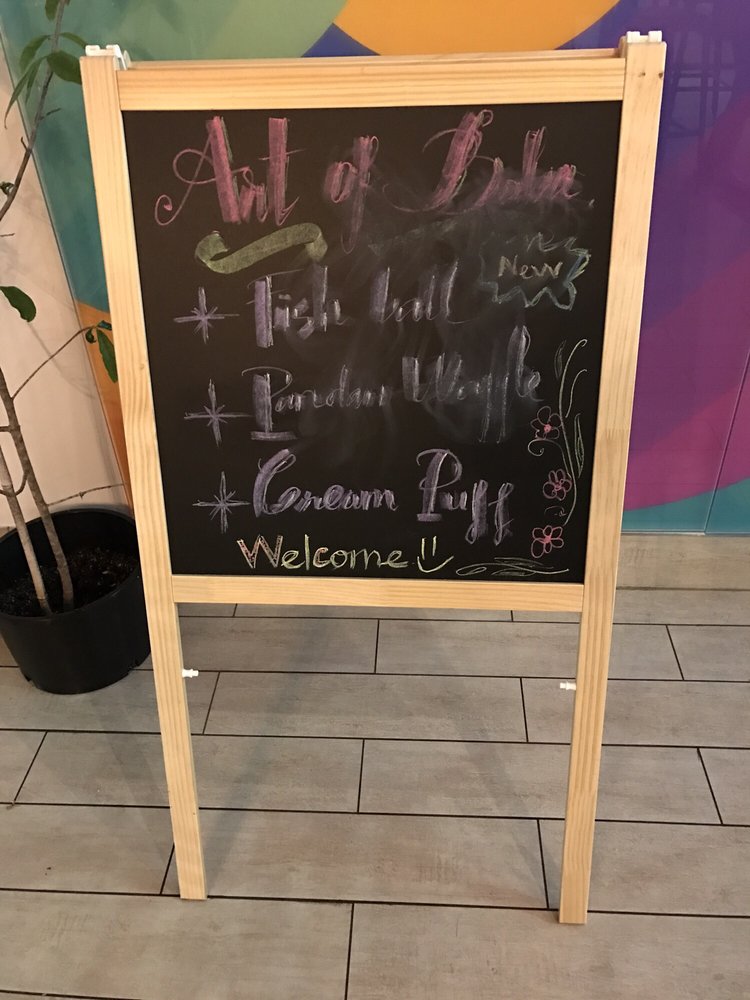 Art of Boba
New
Fish ball
Pandan Waffle
Cream Puff
Welcome